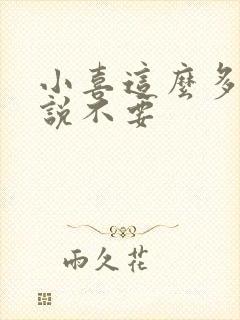 小喜這麼多
說不要
雨久花